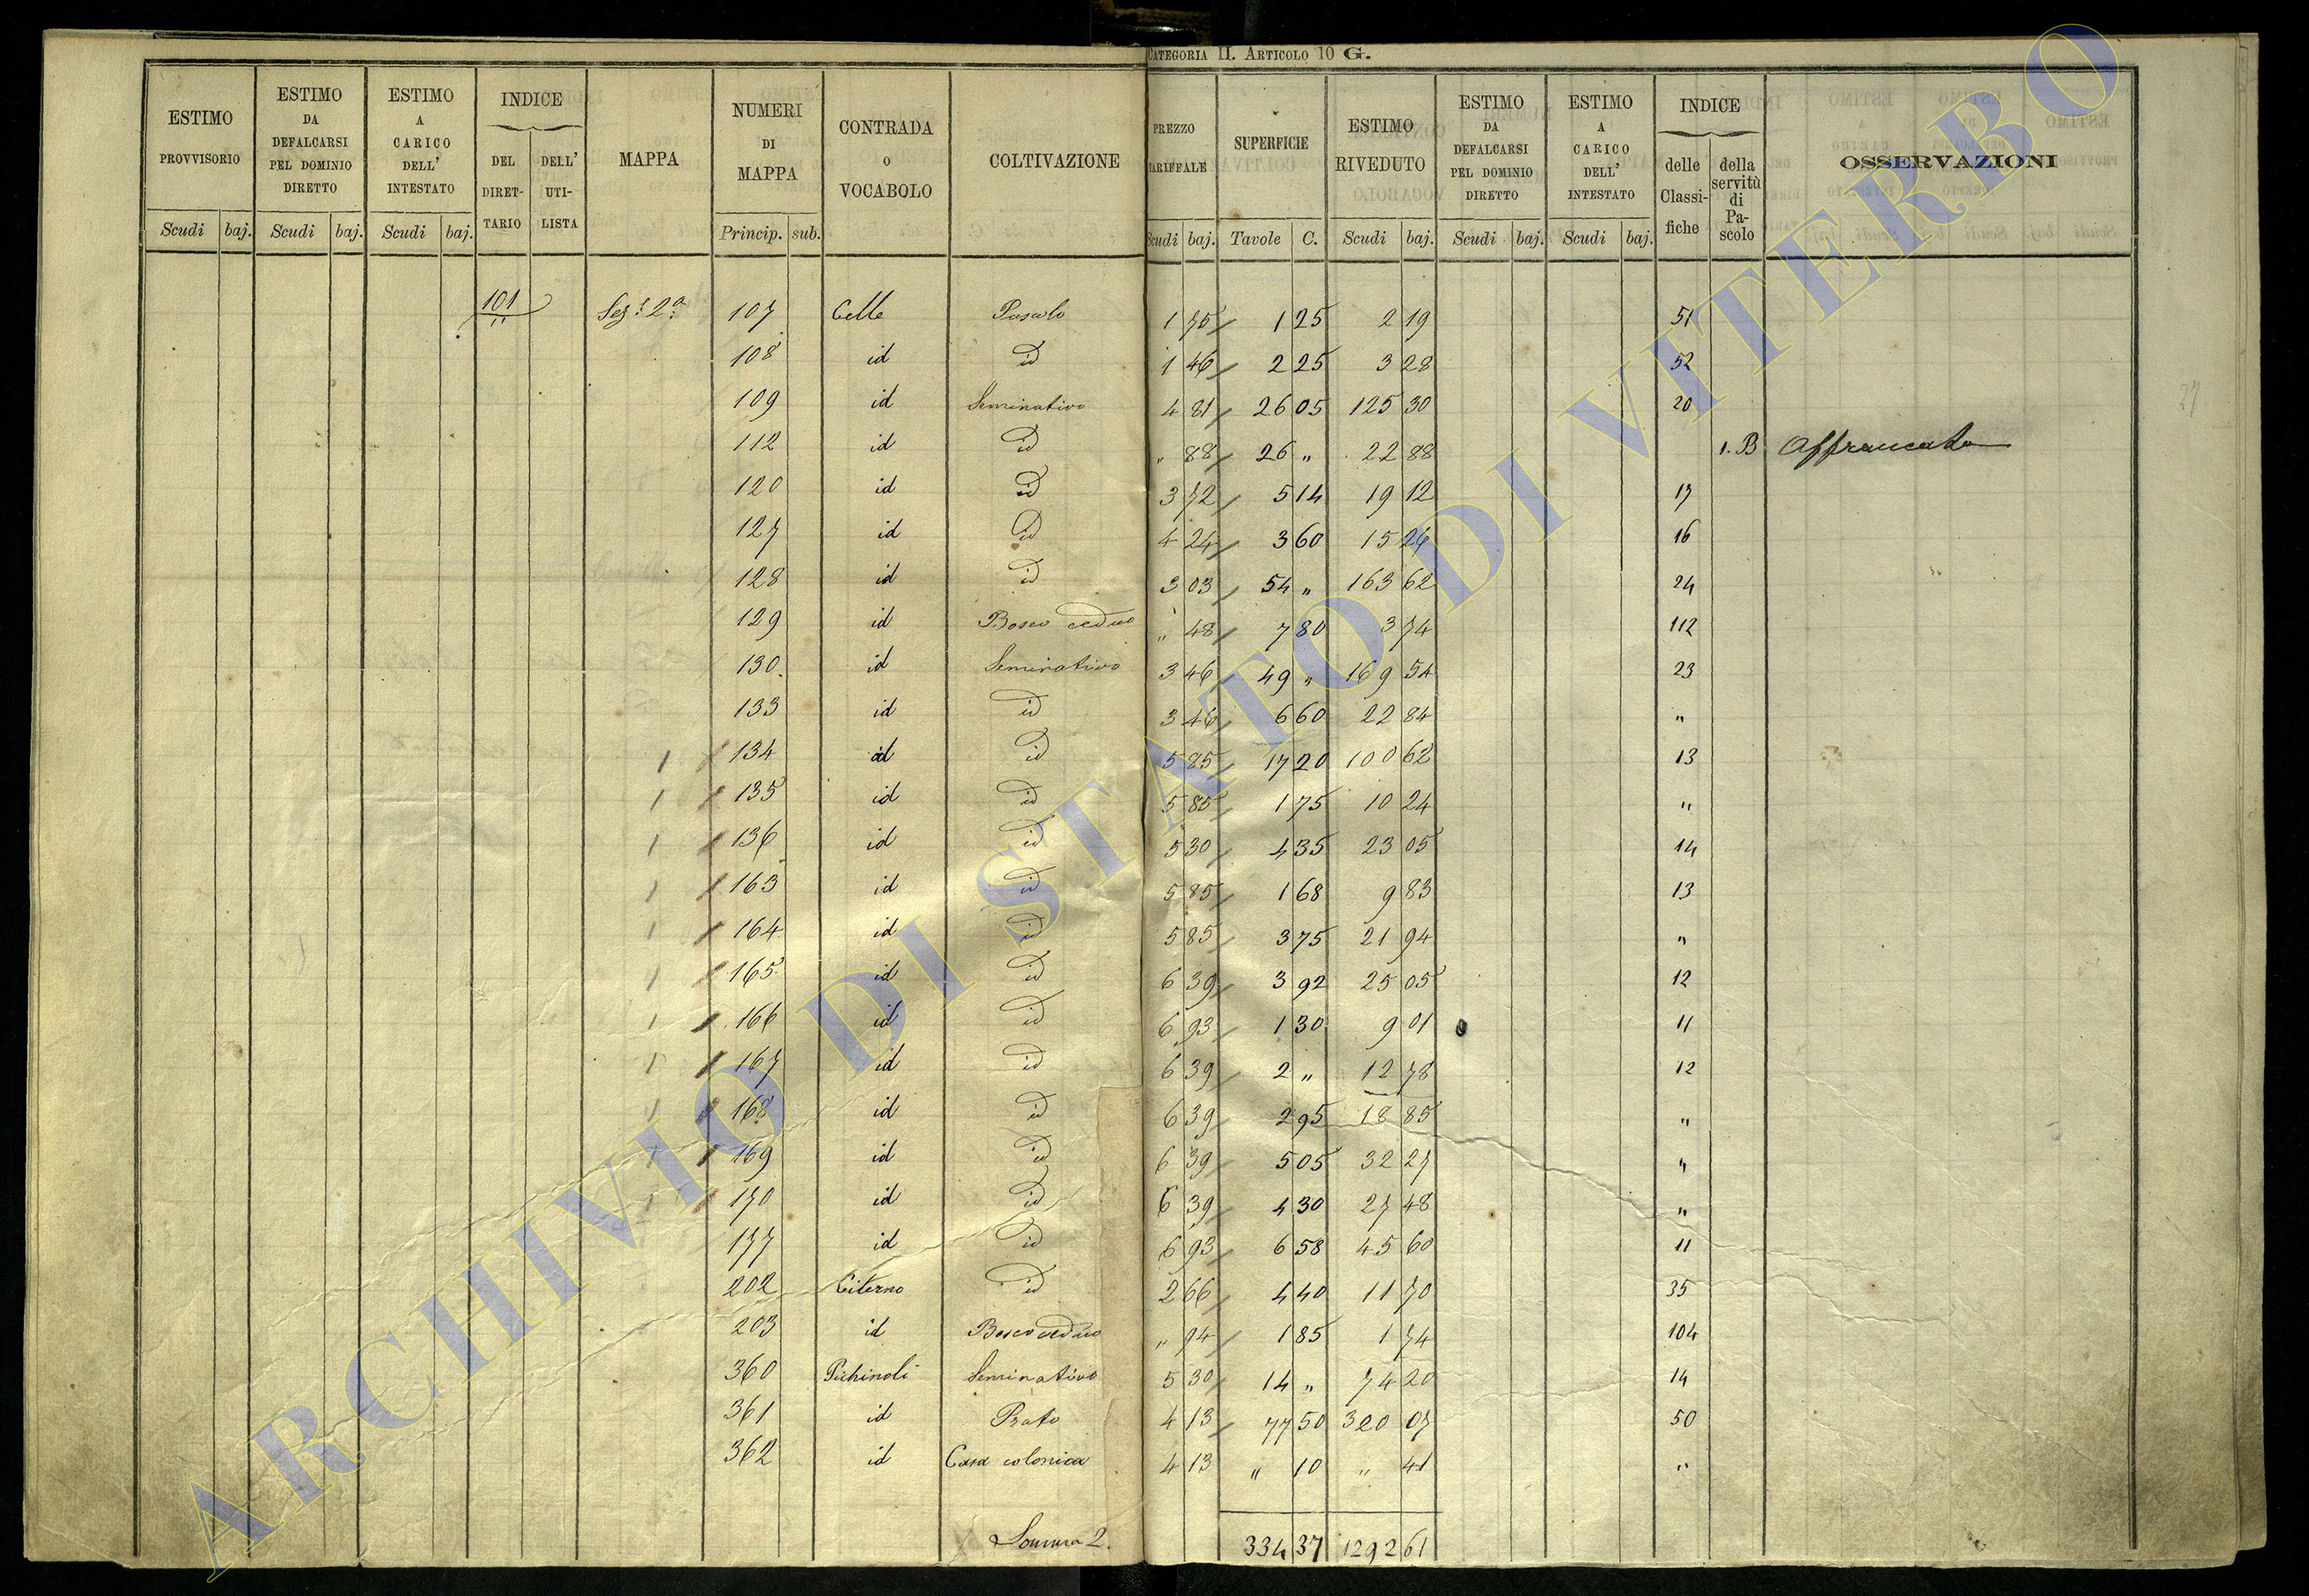 CATEGORIA II. ARTICOLO 10 G.
ESTIMO PROVVISORIO Scudi baj.
ESTIMO DA DEFALCARSI PEL DOMINIO DIRETTO Scudi baj.
ESTIMO A CARICO DELL' INTESTATO Scudi baj.
INDICE DEL DIRETTARIO DELL' UTILISTA
MAPPA
NUMERI DI MAPPA Princip. sub.
CONTRADA O VOCABOLO
COLTIVAZIONE
PREZZO TARIFFALE Scudi baj.
SUPERFICIE Tavole C.
ESTIMO RIVEDUTO Scudi baj.
ESTIMO DA DEFALCARSI PEL DOMINIO DIRETTO Scudi baj.
ESTIMO A CARICO DELL' INTESTATO Scudi baj.
INDICE delle Classifiche della servitù di Pascolo
OSSERVAZIONI
101 Sez.e 2a 107 Celle Pascolo 1 75 1 25 2 19 51
108 id id 1 46 2 25 3 28 52
109 id Seminativo 4 81 26 05 125 30 20
112 id id " 88 26 " 22 88 1. B Affrancata
120 id id 3 72 5 14 19 12 17
127 id id 4 24 3 60 15 26 16
128 id id 3 03 54 " 163 62 24
129 id Bosco ceduo " 48 7 80 3 74 112
130 id Seminativo 3 46 49 " 169 54 23
133 id id 3 46 6 60 22 84 "
134 id id 5 85 17 20 100 62 13
135 id id 5 85 1 75 10 24 "
136 id id 5 30 4 35 23 05 14
163 id id 5 85 1 68 9 83 13
164 id id 5 85 3 75 21 94 "
165 id id 6 39 3 92 25 05 12
166 id id 6 93 1 30 9 01 11
167 id id 6 39 2 " 12 78 12
168 id id 6 39 2 95 18 85 "
169 id id 6 39 5 05 32 27 "
170 id id 6 39 4 30 27 48 "
177 id id 6 93 6 58 45 60 11
202 Citerno id 2 66 4 40 11 70 35
203 id Bosco ceduo " 94 1 85 1 74 104
360 Pichinoli Seminativo 5 30 14 " 74 20 14
361 id Prato 4 13 77 50 320 07 50
362 id Casa colonica 4 13 " 10 " 41 "
Somma 2. 334 37 1292 61
27
ARCHIVIO DI STATO DI VITERBO